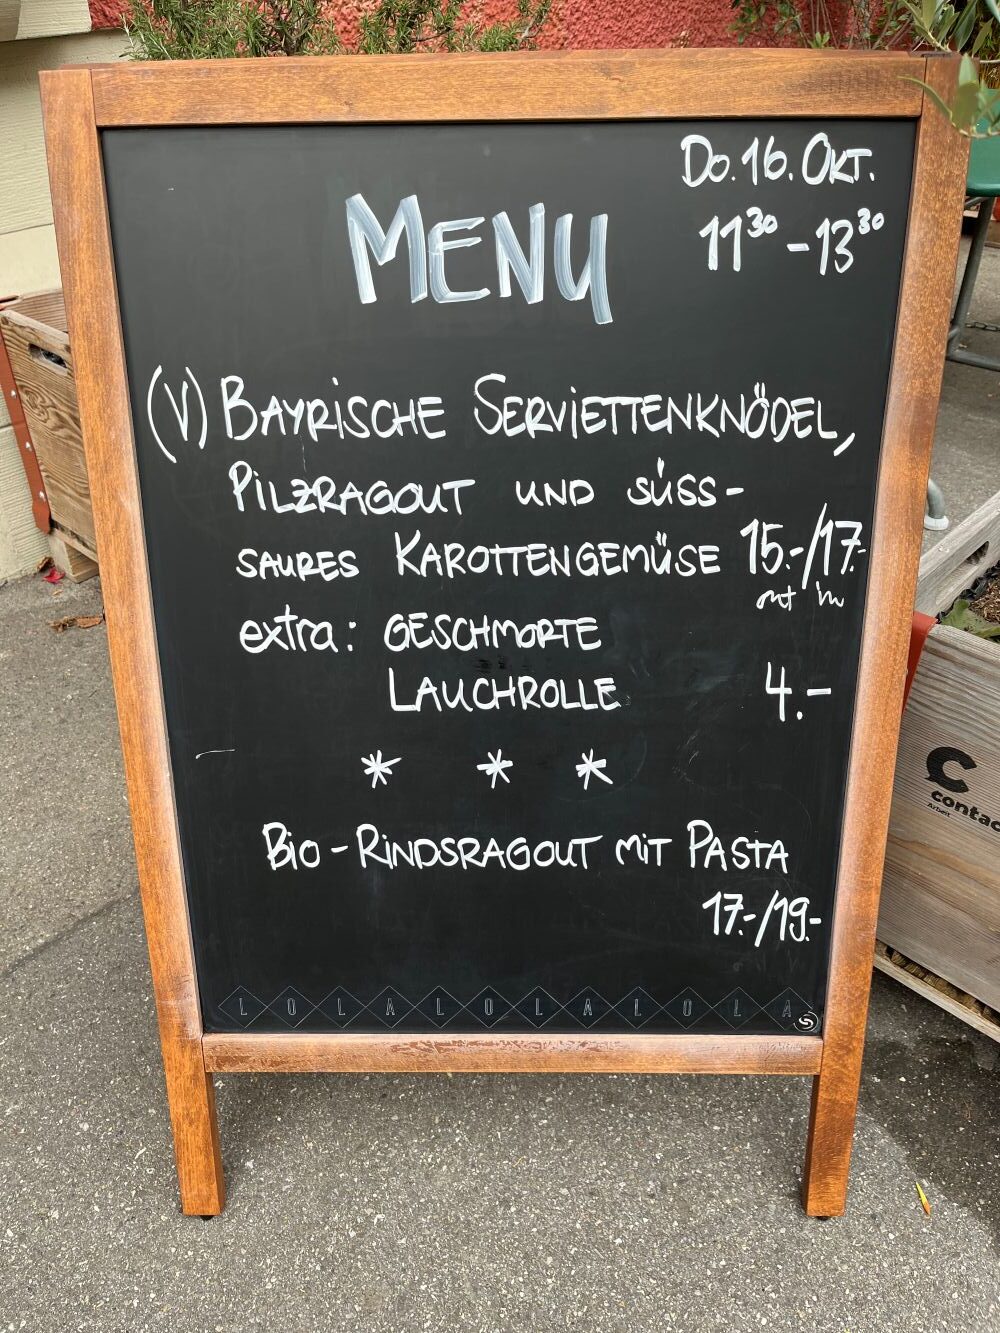 Do. 16. OKT.
11³⁰ - 13³⁰
MENU
(V) BAYRISCHE SERVIETTENKNÖDEL,
PILZRAGOUT UND SÜSS-
SAURES KAROTTENGEMÜSE 15.-/17.-
extra: GESCHMORTE
LAUCHROLLE 4.-
* * *
BIO-RINDSRAGOUT MIT PASTA
17.-/19.-
L O L A L O L A L O L A
contac
Arbeit